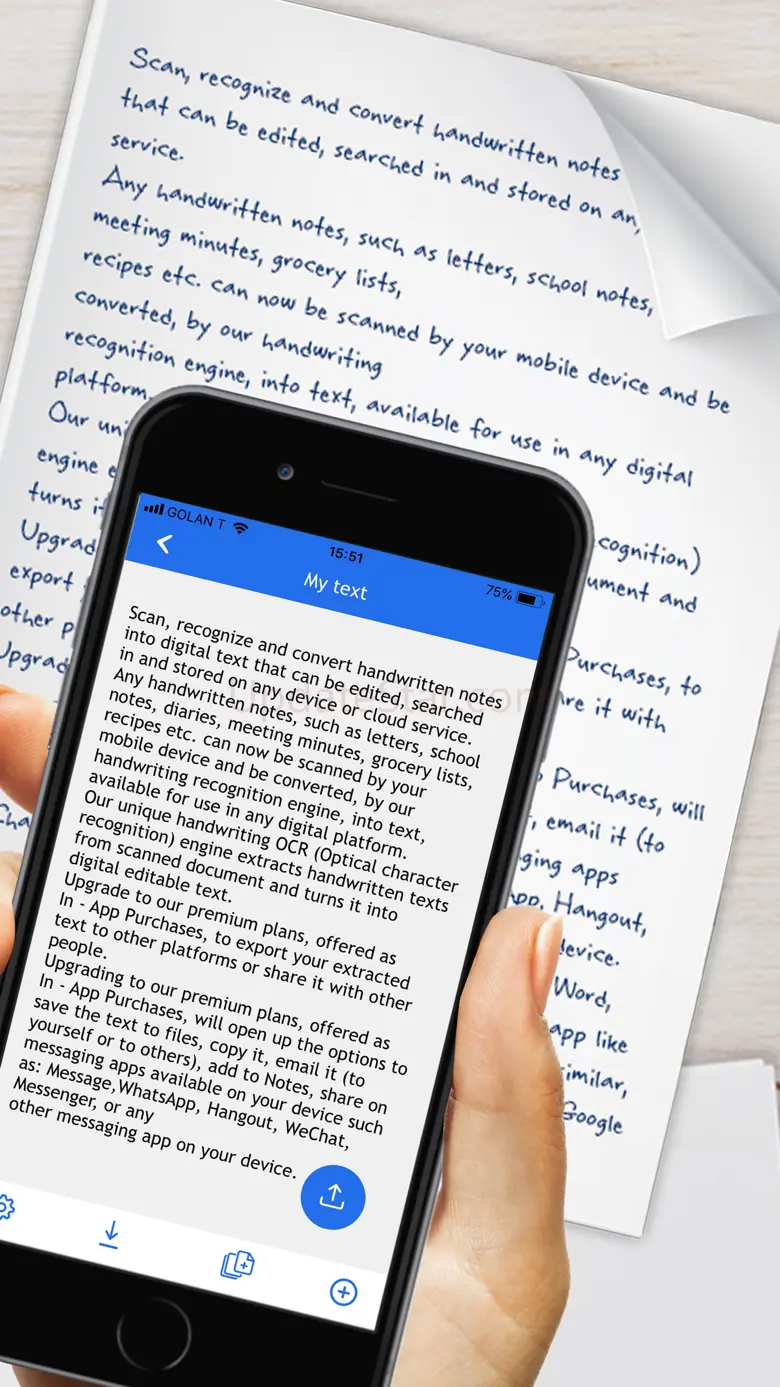 Scan, recognize and convert handwritten notes
that can be edited, searched in and stored on an
service.
Any handwritten notes, such as letters, school notes,
meeting minutes, grocery lists,
recipes etc. can now be scanned by your mobile device and be
converted, by our handwriting
recognition engine, into text, available for use in any digital
platform.
Our uni cognition)
engine e ument and
turns i
Upgrad Purchases, to
export re it with
other p
Upgrad Purchases, will
, email it (to
ging apps
Cha pp, Hangout,
device.
Word,
app like
imilar,
Google
GOLAN T 15:51 75%
My text
Scan, recognize and convert handwritten notes
into digital text that can be edited, searched
in and stored on any device or cloud service.
Any handwritten notes, such as letters, school
notes, diaries, meeting minutes, grocery lists,
recipes etc. can now be scanned by your
mobile device and be converted, by our
handwriting recognition engine, into text,
available for use in any digital platform.
Our unique handwriting OCR (Optical character
recognition) engine extracts handwritten texts
from scanned document and turns it into
digital editable text.
Upgrade to our premium plans, offered as
In - App Purchases, to export your extracted
text to other platforms or share it with other
people.
Upgrading to our premium plans, offered as
In - App Purchases, will open up the options to
save the text to files, copy it, email it (to
yourself or to others), add to Notes, share on
messaging apps available on your device such
as: Message,WhatsApp, Hangout, WeChat,
Messenger, or any
other messaging app on your device.
UpdateStar.com